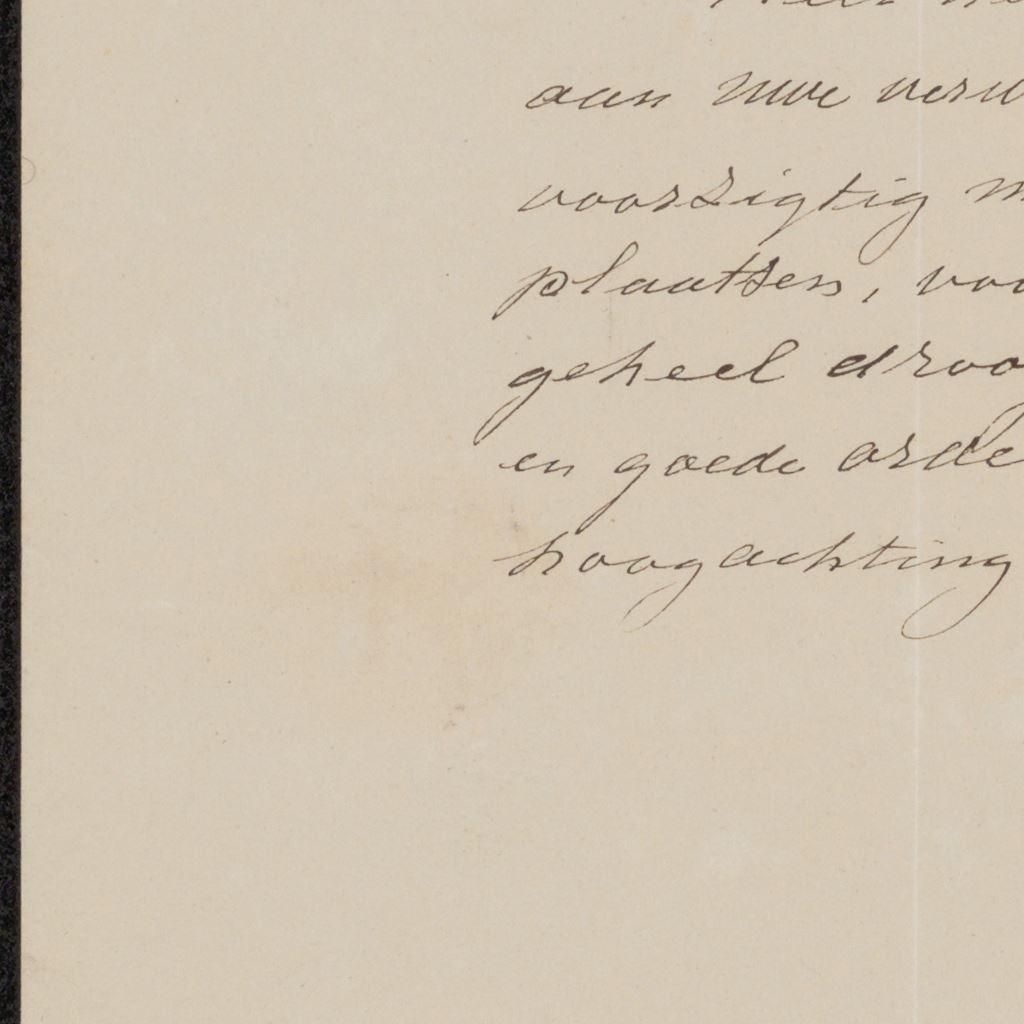 aan Uwe
voorzigtig
plaatsen,
geheel
en goede orde
hoogachting